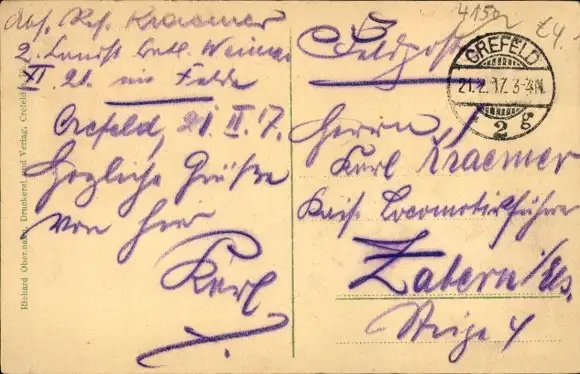 Abs. Rs. Kraemer
2. Landst. Batl. Weimar
XI 21. im Felde
Crefeld, 21. II. 17.
Herzliche Grüße
von hier
Karl
Feldpost
4150
CREFELD
21.2.17. 3-4N.
2 g
Herrn
Karl Kraemer
Kais. Locomotivführer
Zabern i/Els.
Steige 4
Druckerei und Verlag, Crefeld